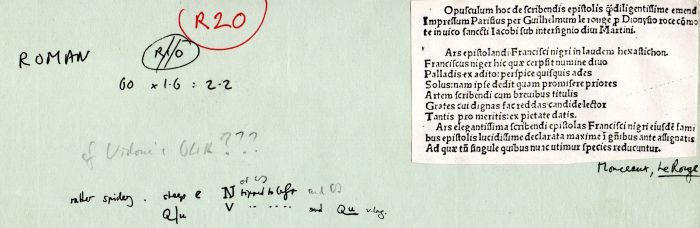 R20
ROMAN
R110
60 x 1·6 : 2·2
of Vidoue's GkR ???
rather spidery. steep e N tipped to left and
Q/u V " and Qu v. leg.
Opusculum hoc de scribendis epistolis q̃diligentissime emend
Impressum Parisius per Guilhelmum le rouge p̱ Dionysio roce cōmo
te in uico sanccti Iacobi sub intersignio diui Martini.
Ars epistolandi Francisci nigri in laudem hexastichon.
Franciscus niger hic quæ cerpsit numine diuo
Palladis ex adito: perspice quisquis ades
Solus: nam ipse dedit quam promisere priores
Artem scribendi cum breuibus titulis
Grates cui dignas fac reddas candide lector
Tantis pro meritis: ex pietate datis.
Ars elegantissima scribendi epistolas Francisci nigri eiusdē fami
bus epistolis lucidissime declarata maxime ī gñibus ante assignatis
Ad quæ tñ singule quibus nunc utimur species reducuntur.
Monceaux, Le Rouge